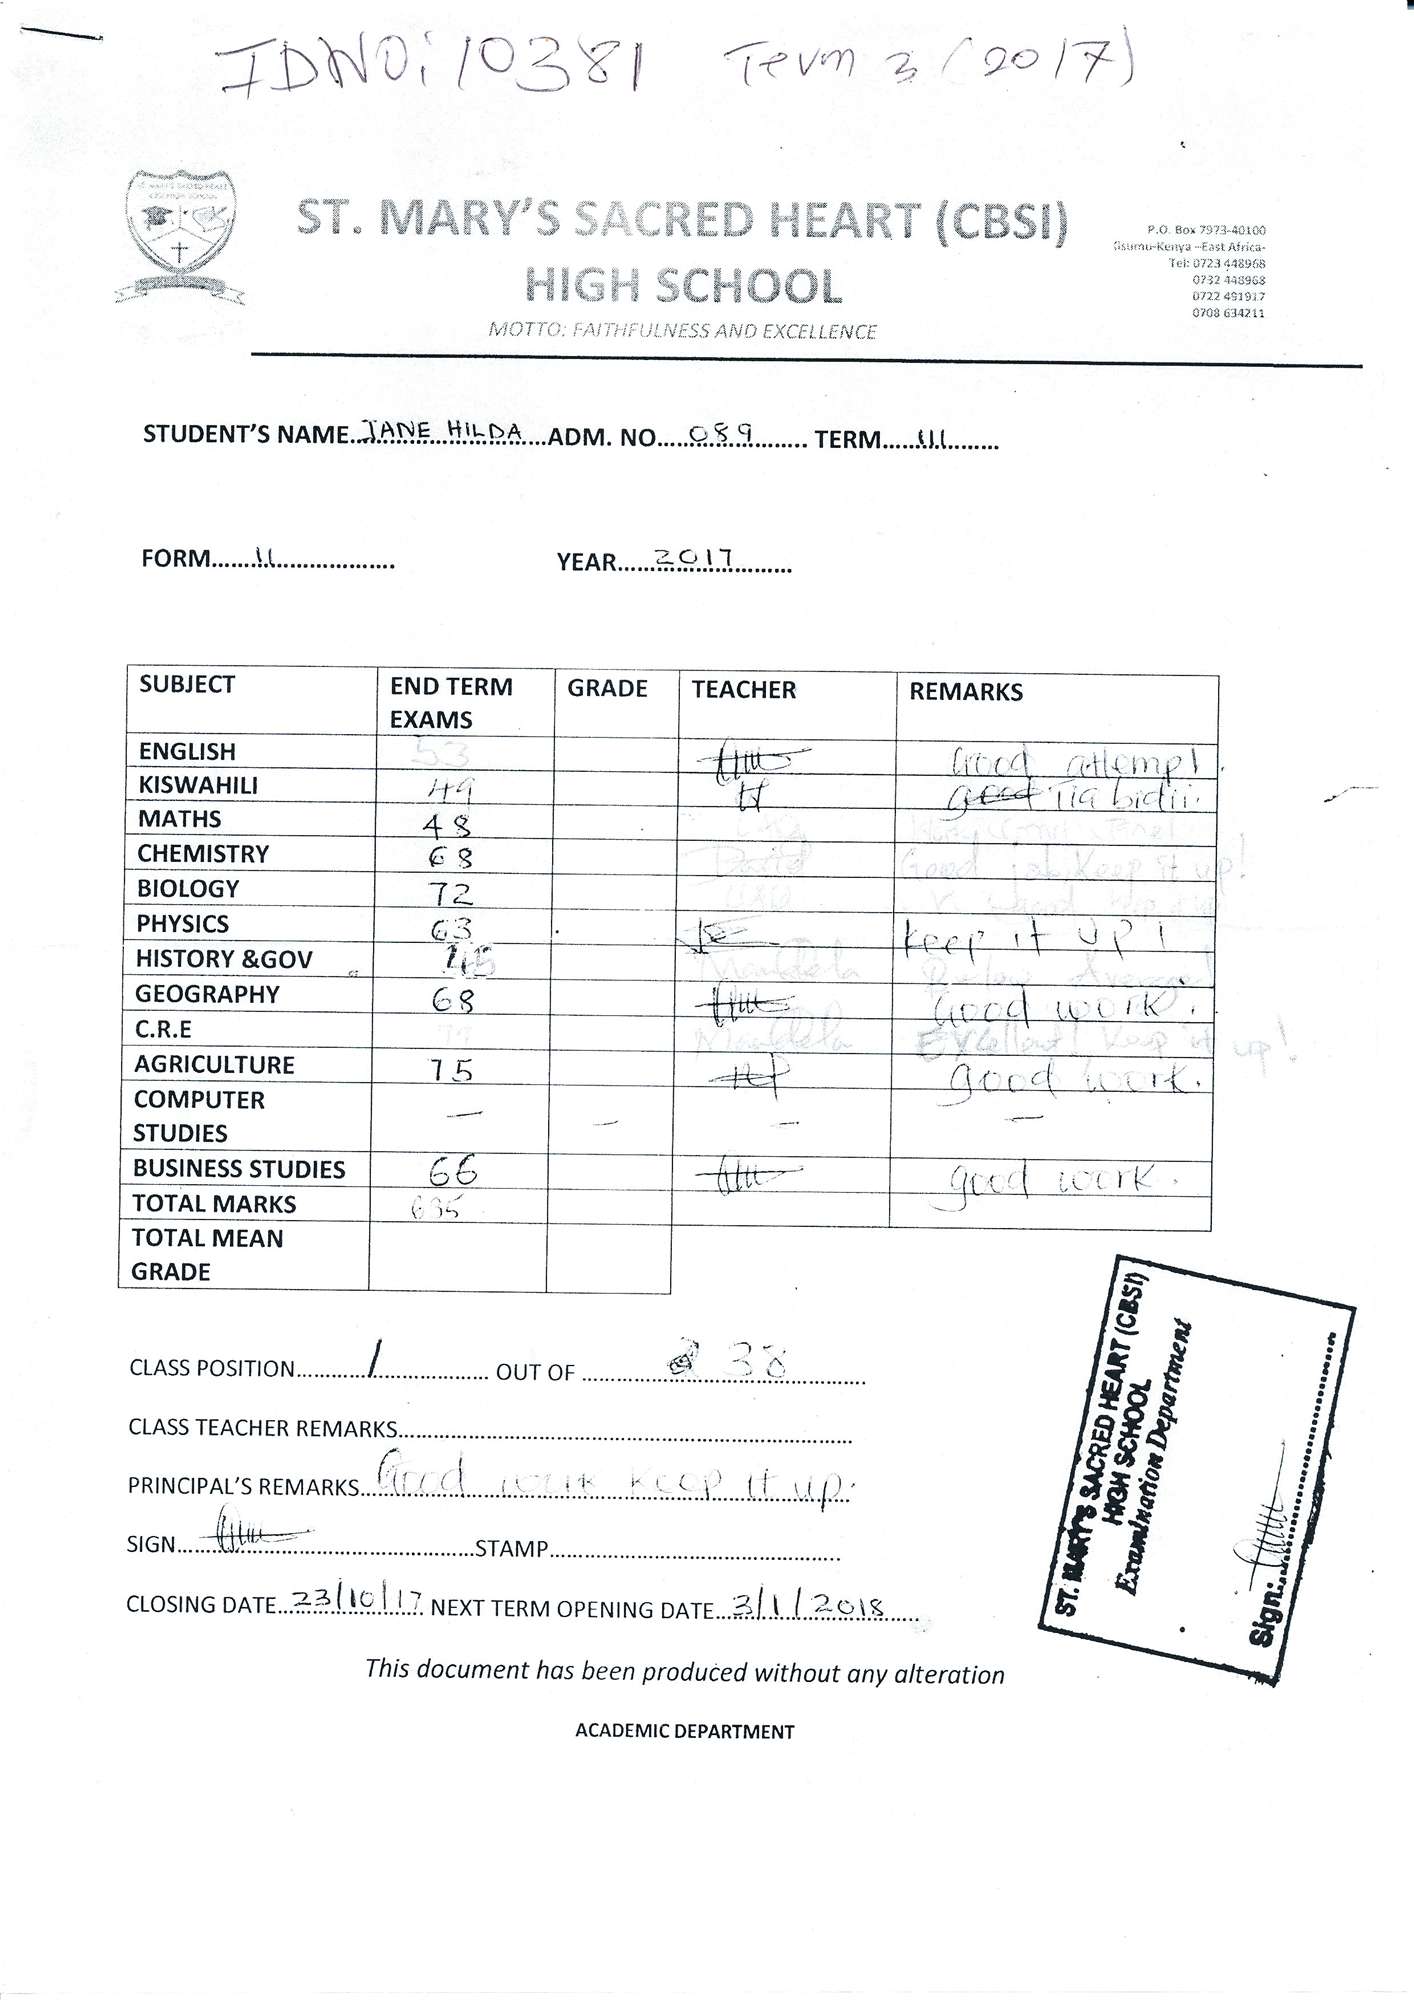 IDNO: 10381 Term 3 (2017)
ST. MARY'S SACRED HEART (CBSI)
HIGH SCHOOL
MOTTO: FAITHFULNESS AND EXCELLENCE
P.O. Box 7973-40100
-Kenya -East Africa-
Tel: 0723 448968
0732 448968
0722 491917
0708 634211
STUDENT'S NAME...JANE HILDA...ADM. NO.....089........ TERM......III.........
FORM.......II.................. YEAR.....2017.........
SUBJECT END TERM EXAMS GRADE TEACHER REMARKS
ENGLISH 53 Good attempt.
KISWAHILI 49 good Tia bidii.
MATHS 48
CHEMISTRY 68 David Good job, keep it up!
BIOLOGY 72
PHYSICS 63 keep it up!
HISTORY &GOV 45 Mandela Below Average!
GEOGRAPHY 68 Good work.
C.R.E Mandela Excellent! keep it up!
AGRICULTURE 75 good work.
COMPUTER STUDIES — — — —
BUSINESS STUDIES 66 good work.
TOTAL MARKS 685
TOTAL MEAN GRADE
CLASS POSITION............1................... OUT OF ............38............
CLASS TEACHER REMARKS....................................................
PRINCIPAL'S REMARKS...Good work keep it up.
SIGN..........................................STAMP..........................................
CLOSING DATE...23/10/17. NEXT TERM OPENING DATE...3/1/2018......
This document has been produced without any alteration
ACADEMIC DEPARTMENT
ST. MARY'S SACRED HEART (CBSI)
HIGH SCHOOL
Examination Department
Sign:..............................